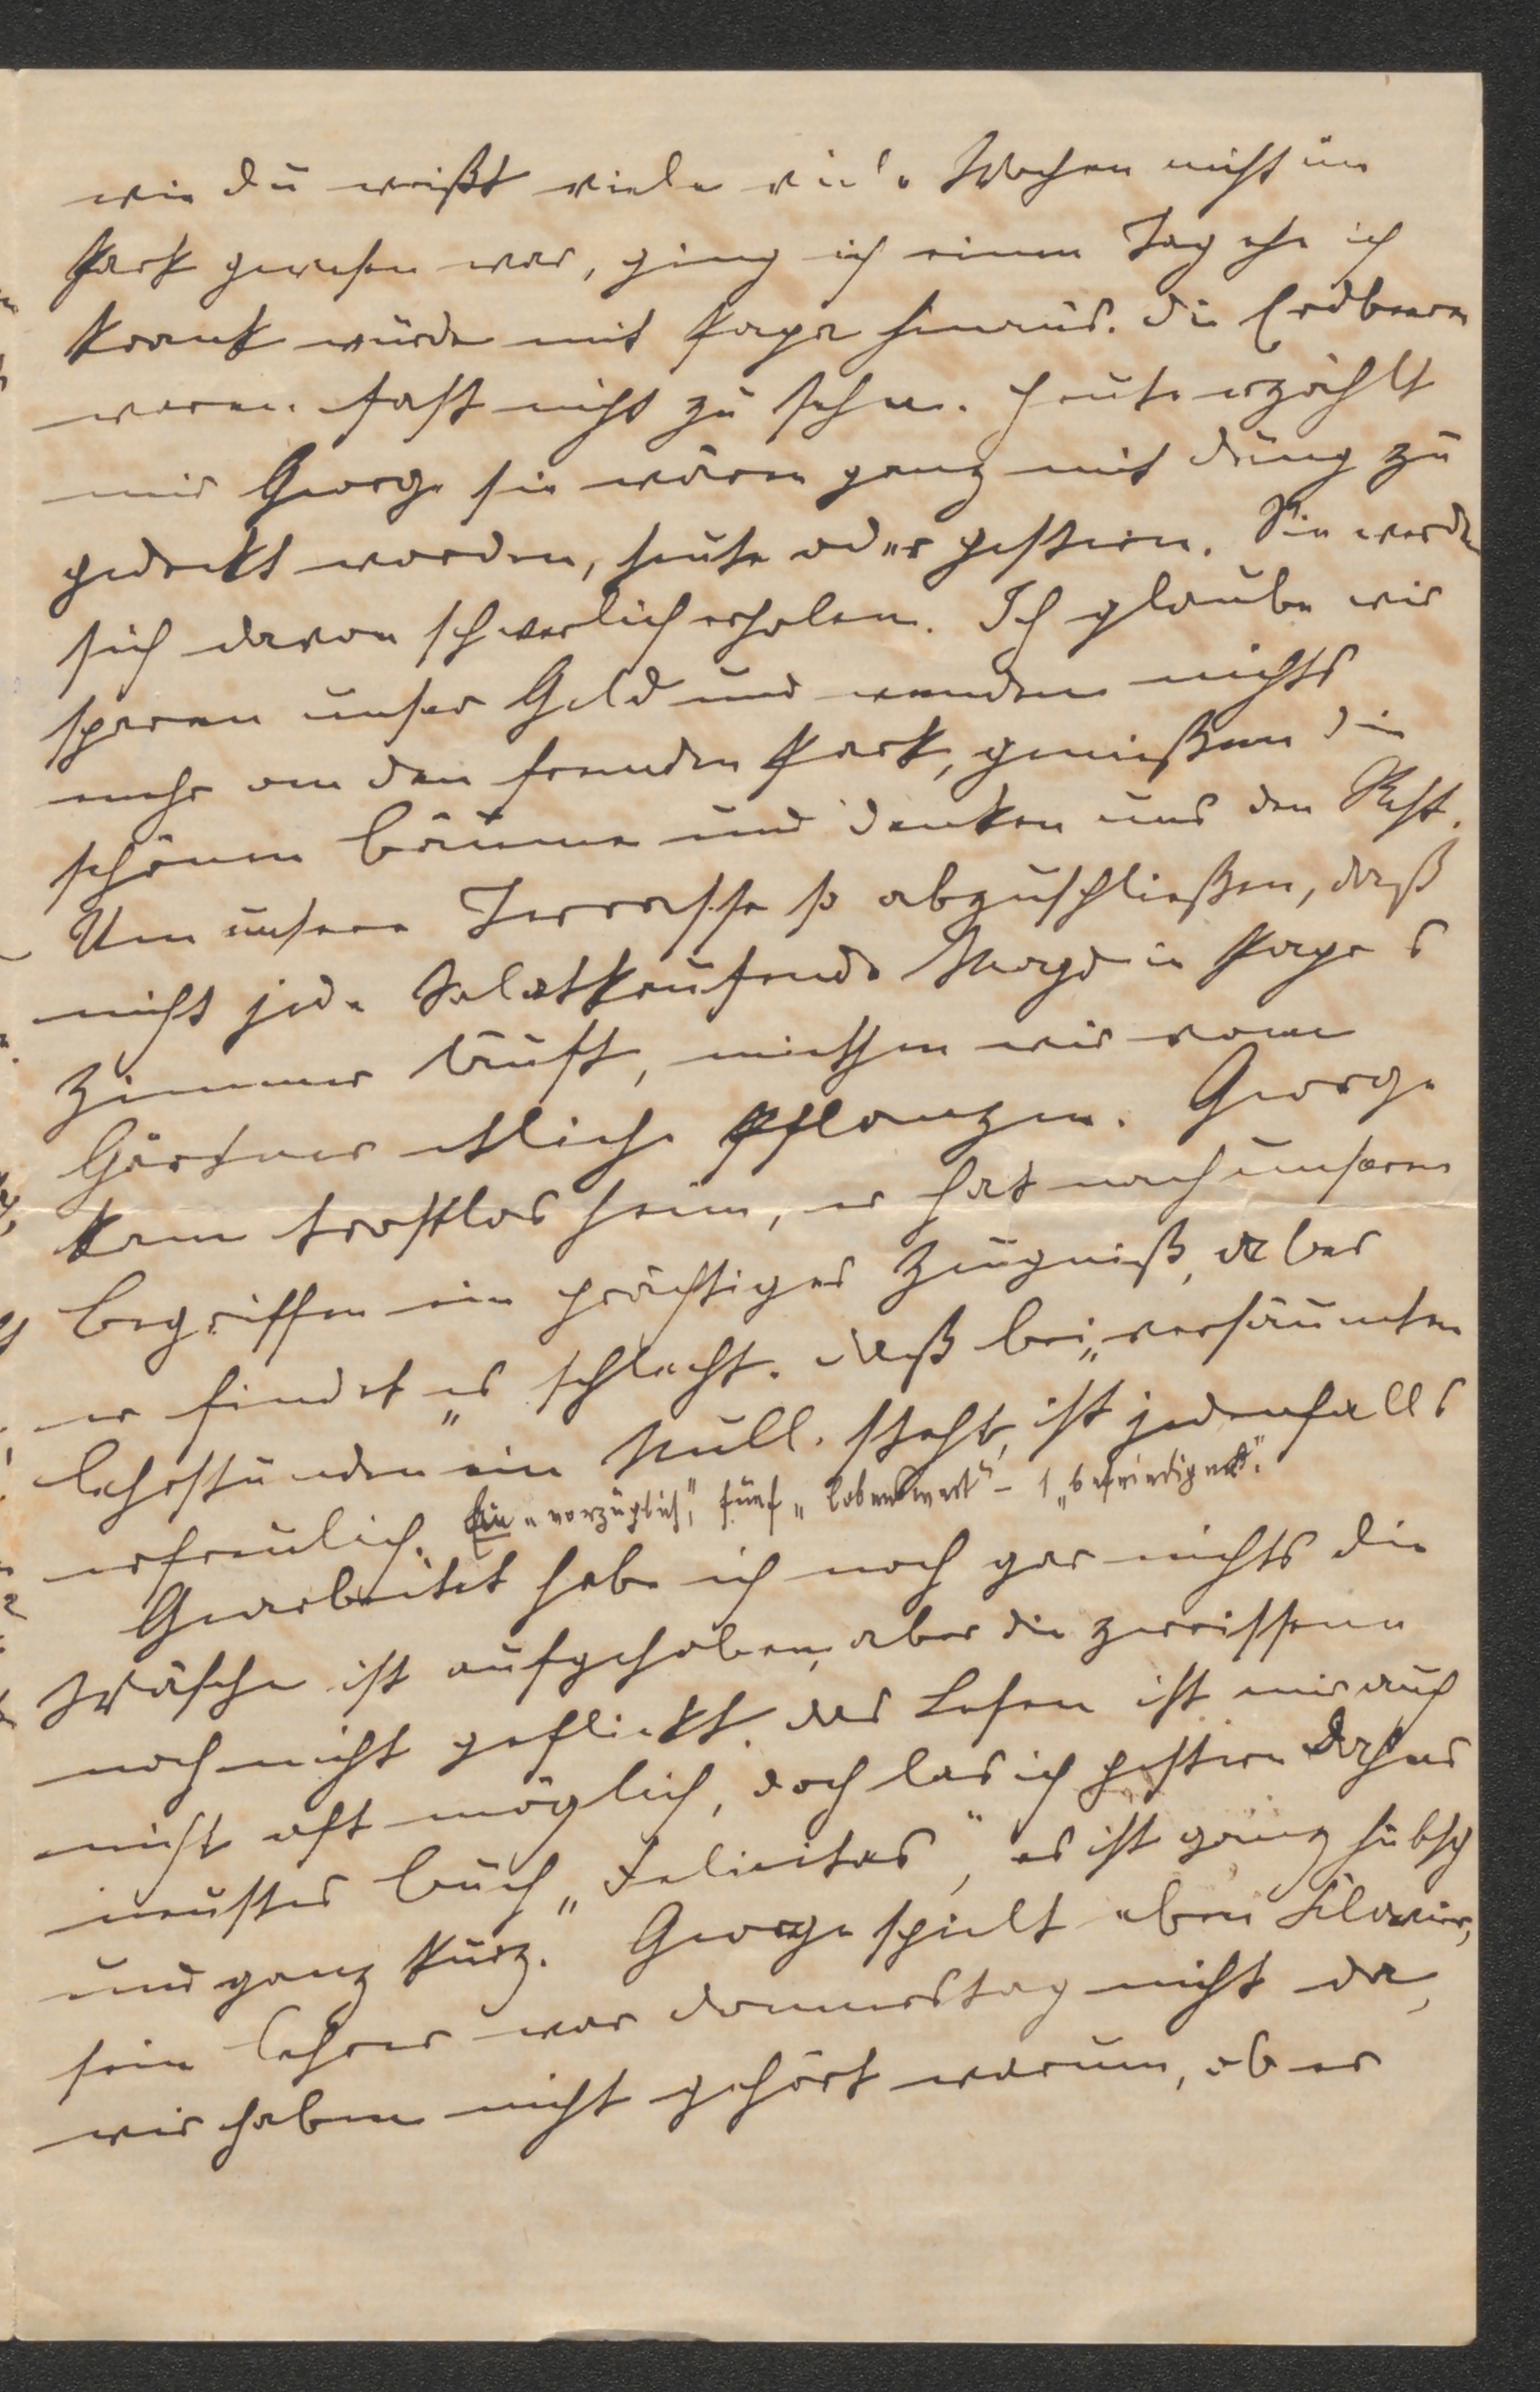 wie du weißt viele viele Wochen nicht im
Park gewesen war, ging ich einen Tag ehe ich
krank wurde mit Papa hinaus. Die Erdbeeren
waren fast nicht zu sehen. Heute erzählt
mir George sie wären ganz mit Dung zu
gedeckt worden, heute oder gestern. Sie werden
sich davon schwerlich erholen. Ich glaube wir
sparen unser Geld und wenden nichts
mehr an den fremden Park, genießen die
schönen Bäume und denken uns den Rest.
Um unsere Terrasse so abzuschließen, daß
nicht jede Salatkaufende Magd in Papas
Zimmer läuft, miethen wir vom
Gärtner etliche Pflanzen. George
kam trostlos heim, er hat nach unseren
Begriffen ein prächtiges Zeugniß, aber
er findet es schlecht. Daß bei „versäumten
Lehrstunden" ein Null. steht, ist jedenfalls
erfreulich. Ein „vorzüglich", fünf „lobenswert" – 1 „befriedigend".
Gearbeitet habe ich noch gar nichts die
Wäsche ist aufgehoben, aber die zerrissene
noch nicht geflickt. Das Lesen ist mir auch
nicht oft möglich, doch las ich gestern Dahns
neustes Buch „Felicitas", es ist ganz hübsch
und ganz kurz. George spielt eben Klavier,
sein Lehrer war Donnerstag nicht da,
wir haben nicht gehört warum, ob er